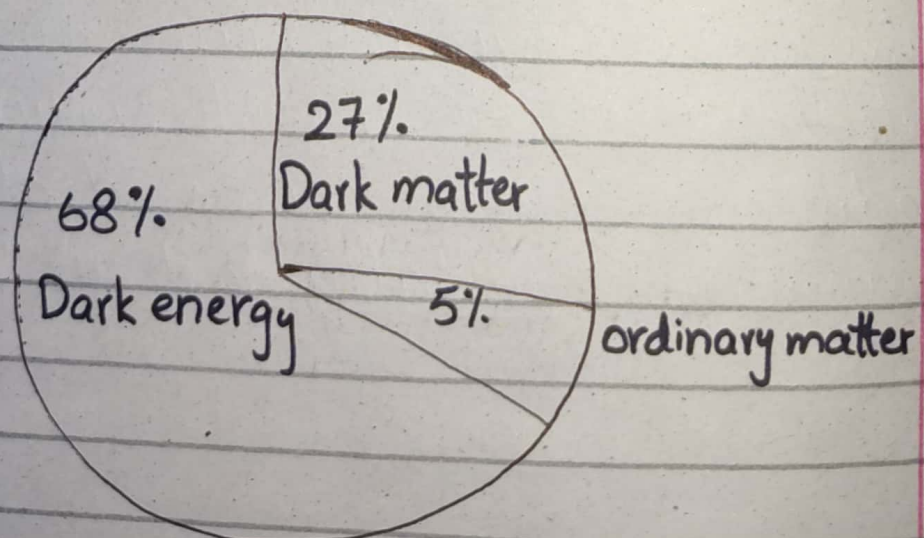 27%.
Dark matter
68%.
Dark energy
5%.
ordinary matter